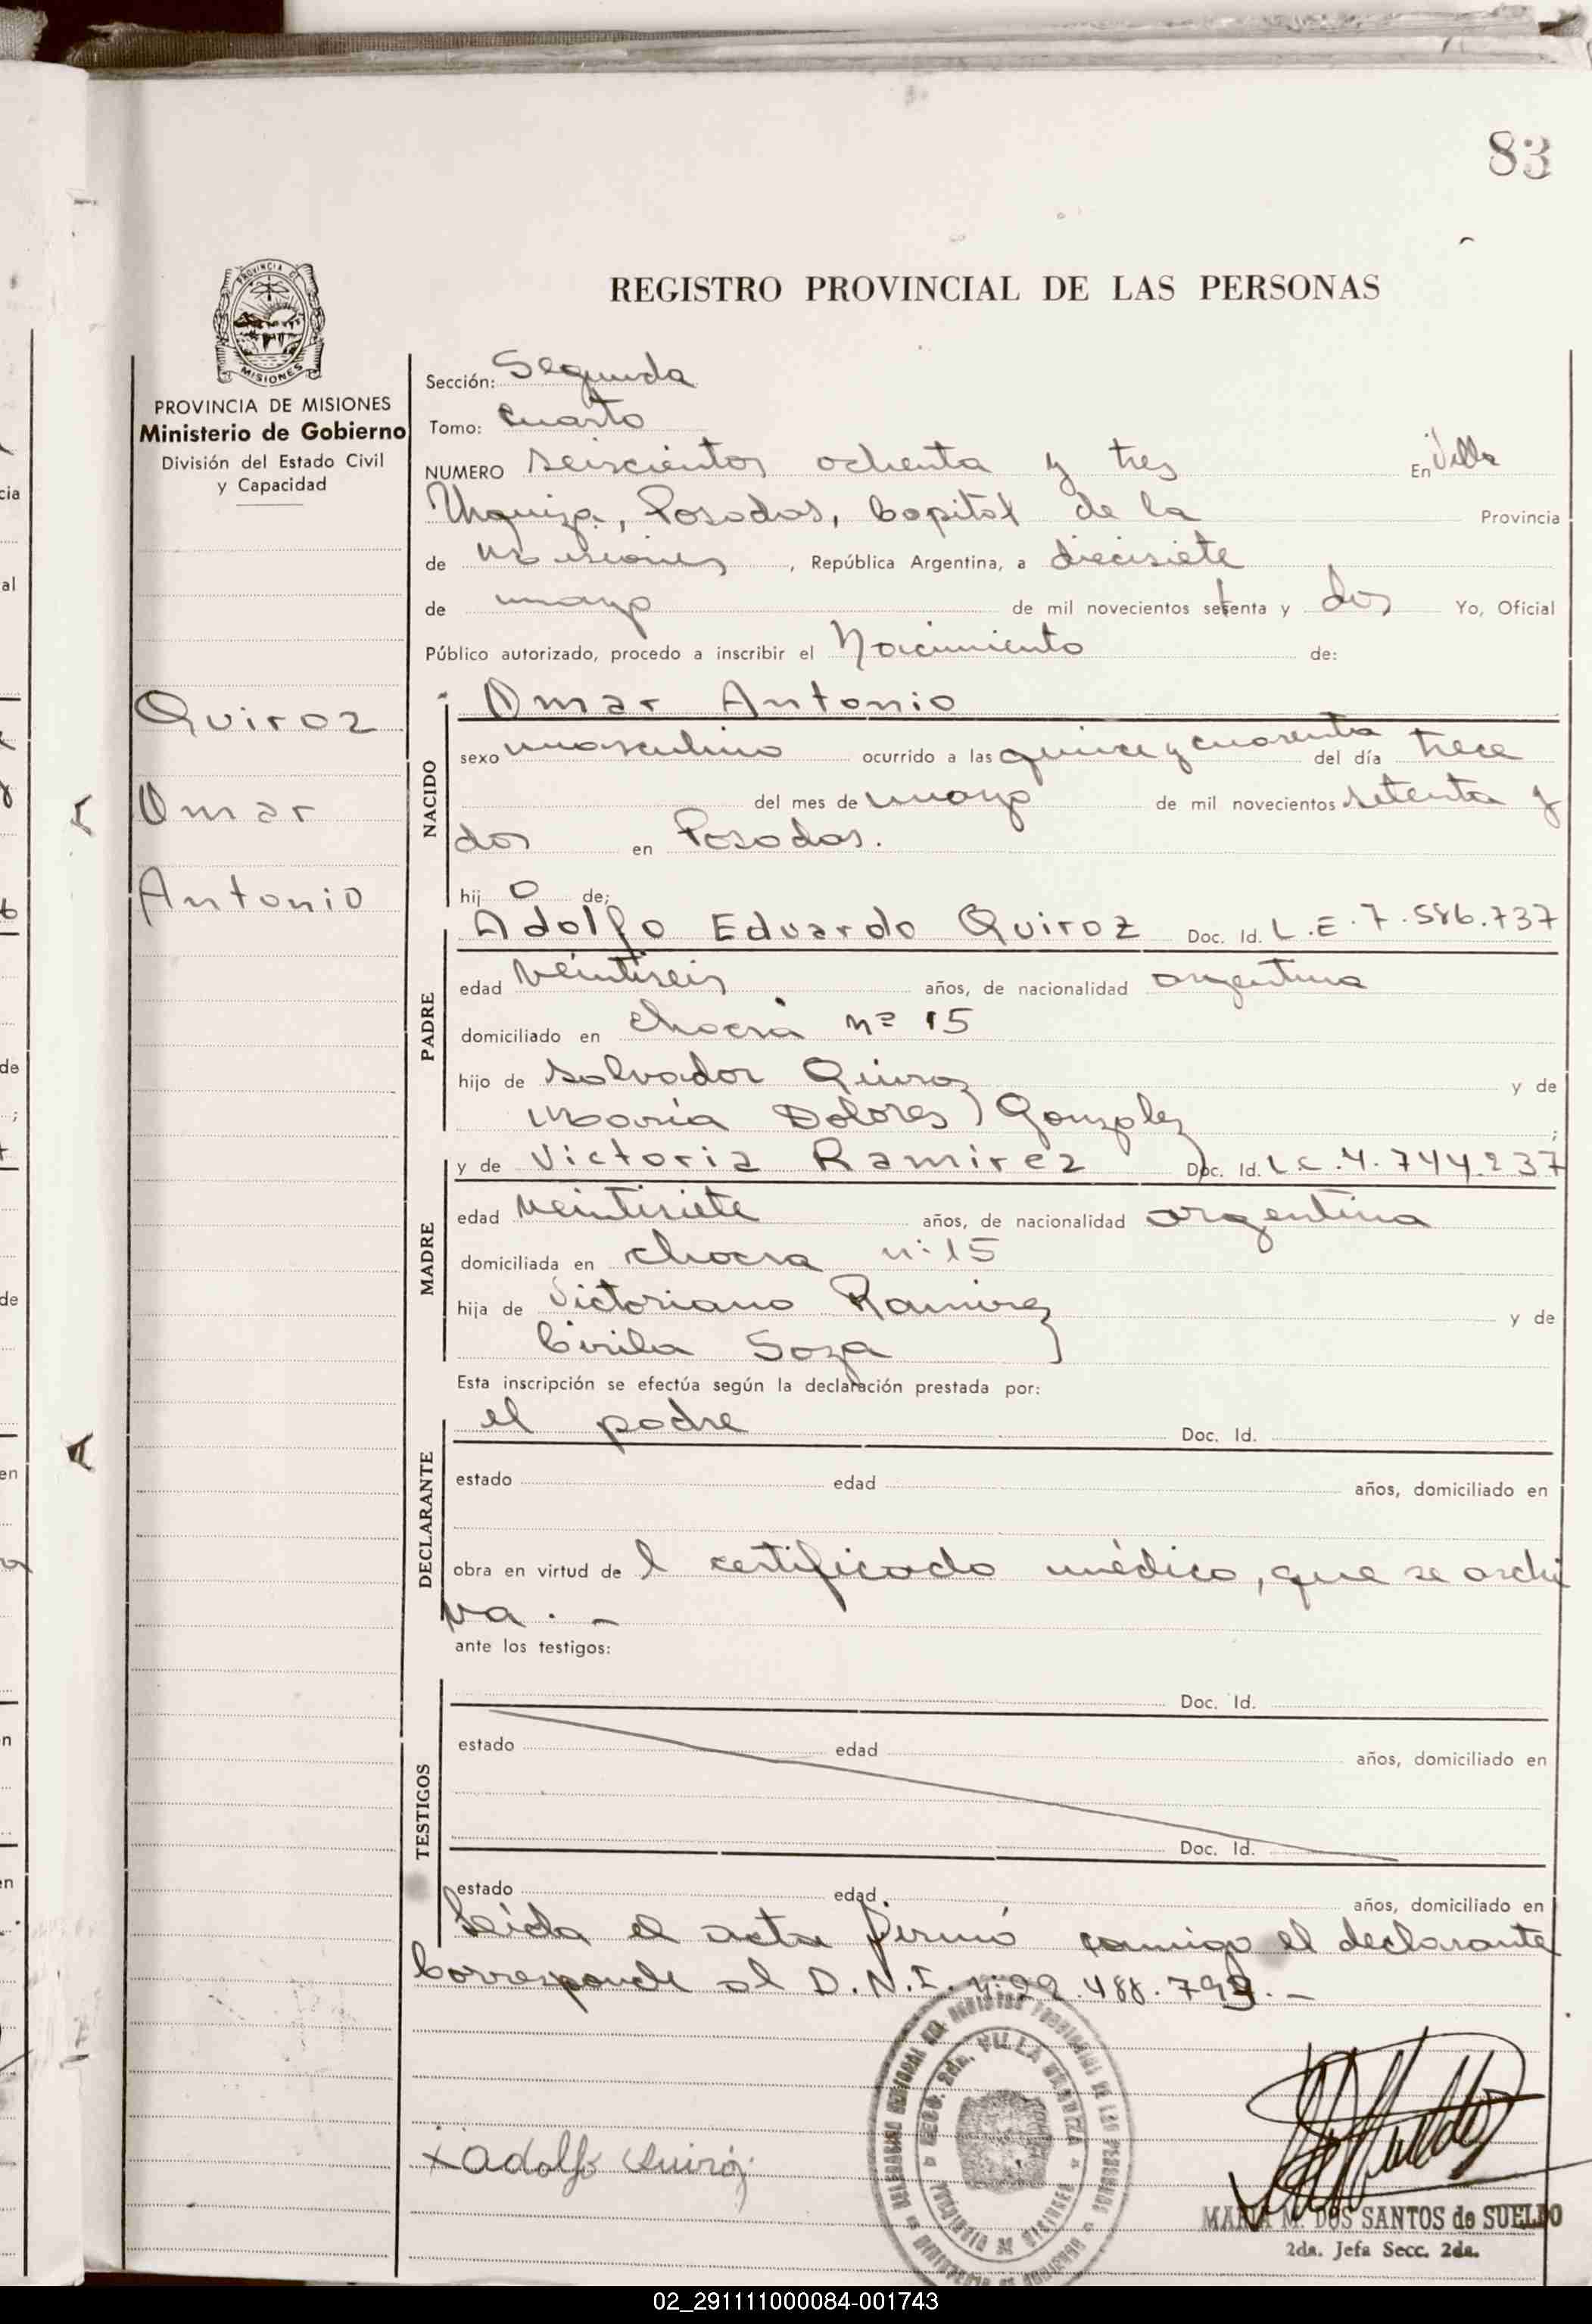 83
REGISTRO PROVINCIAL DE LAS PERSONAS
PROVINCIA DE MISIONES
Ministerio de Gobierno
División del Estado Civil
y Capacidad
Quiroz
Omar
Antonio
Sección: Segunda
Tomo: Cuarto
NUMERO seiscientos ochenta y tres En Villa
Urquiza, Posadas, Capital de la Provincia
de Misiones, República Argentina, a diecisiete
de mayo de mil novecientos setenta y dos Yo, Oficial
Público autorizado, procedo a inscribir el Nacimiento de:
NACIDO
Omar Antonio
sexo masculino ocurrido a las quince y cuarenta del día trece
del mes de mayo de mil novecientos setenta y
dos en Posadas.
hijo de;
PADRE
Adolfo Eduardo Quiroz Doc. Id. L.E. 7.586.737
edad veintiseis años, de nacionalidad argentina
domiciliado en chacra nº 15
hijo de Salvador Quiroz y de
María Dolores González ;
MADRE
y de Victoria Ramirez Doc. Id. L.C. 4.744.237
edad veintisiete años, de nacionalidad argentina
domiciliada en chacra nº 15
hija de Victoriano Ramirez y de
Cirila Soza
Esta inscripción se efectúa según la declaración prestada por:
DECLARANTE
el padre Doc. Id.
estado edad años, domiciliado en
obra en virtud del certificado médico, que se archi
va. -
ante los testigos:
TESTIGOS
Doc. Id.
estado edad años, domiciliado en
Doc. Id.
estado edad años, domiciliado en
Leída el acta firmó conmigo el declarante
Corresponde al D.N.I. nº 22.488.799. -
x Adolfo Quiroz
SECC. 2da. VILLA URQUIZA
MARIA M. DOS SANTOS de SUELDO
2da. Jefa Secc. 2da.
02_291111000084-001743